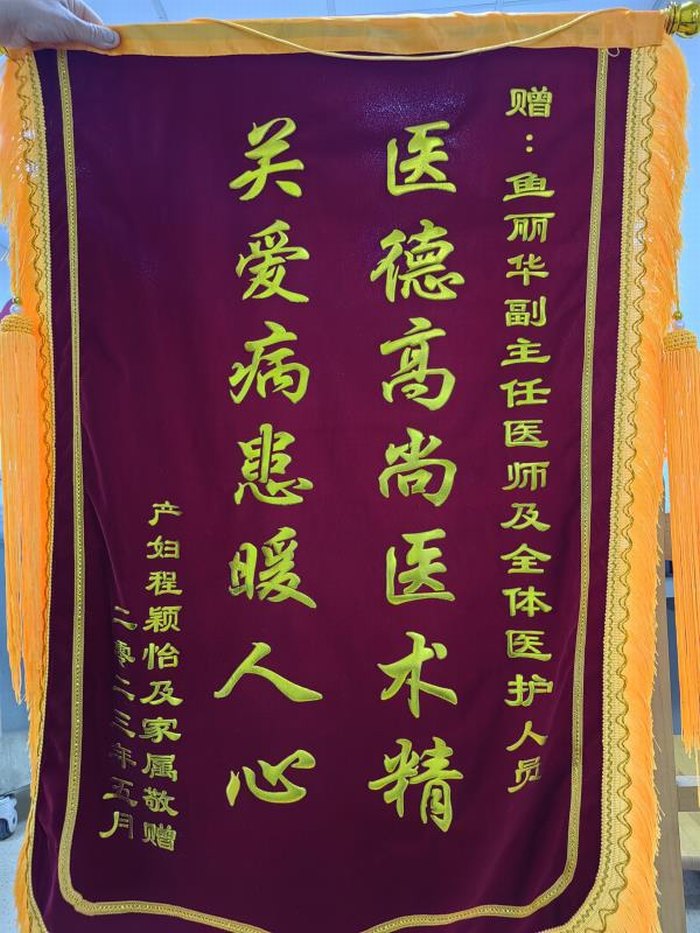 赠：鱼丽华副主任医师及全体医护人员
医德高尚医术精
关爱病患暖人心
产妇程颖怡及家属敬赠
二零二三年五月